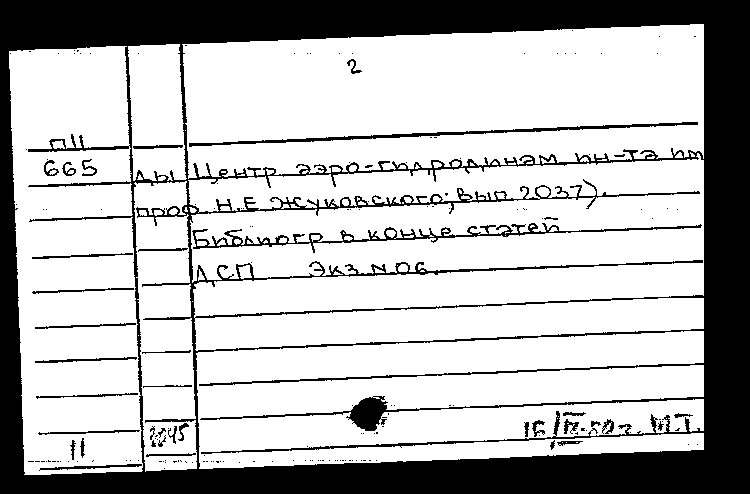 2
П11
665 ды Центр аэро-гидродинам ин-та им
проф Н.Е Жуковского; вып 2037).
Библиогр в конце статей
ДСП Экз N 06.
11 2045 16/IX-80г. М.Т.